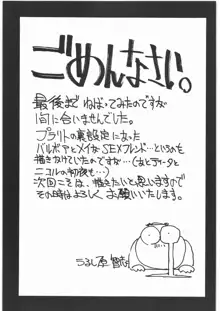 ごめんなさい。
最後まで ねばってみたのですが
間に合いませんでした。
プラリトの裏設定になった
バルボアとメイなSEXフレンド…というのも
描きかけていたのですが…(あとライタと
ニコルの初夜も…)
次回こそは、描きたいと思いますので
その時はよろしく、お願いいたします。
うるし原 智志